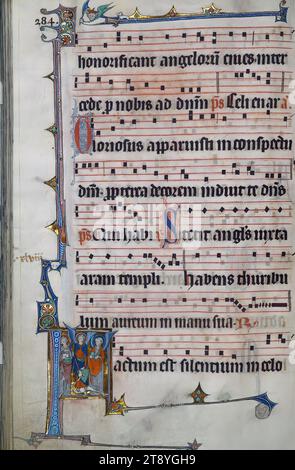 284.
honorificant angeloꝝ ciues inter
cede p nobis ad dñm p̄s Celi enar a
Gloriosus apparuisti in conspectu
dñi. propterea decorem induit te dñs
p̄s Cui habi Stetit angls iuxta
xlviii
aram templi. habens thuribu
lum aureum in manu sua.
Factum est silentium in celo
2T8YGH9